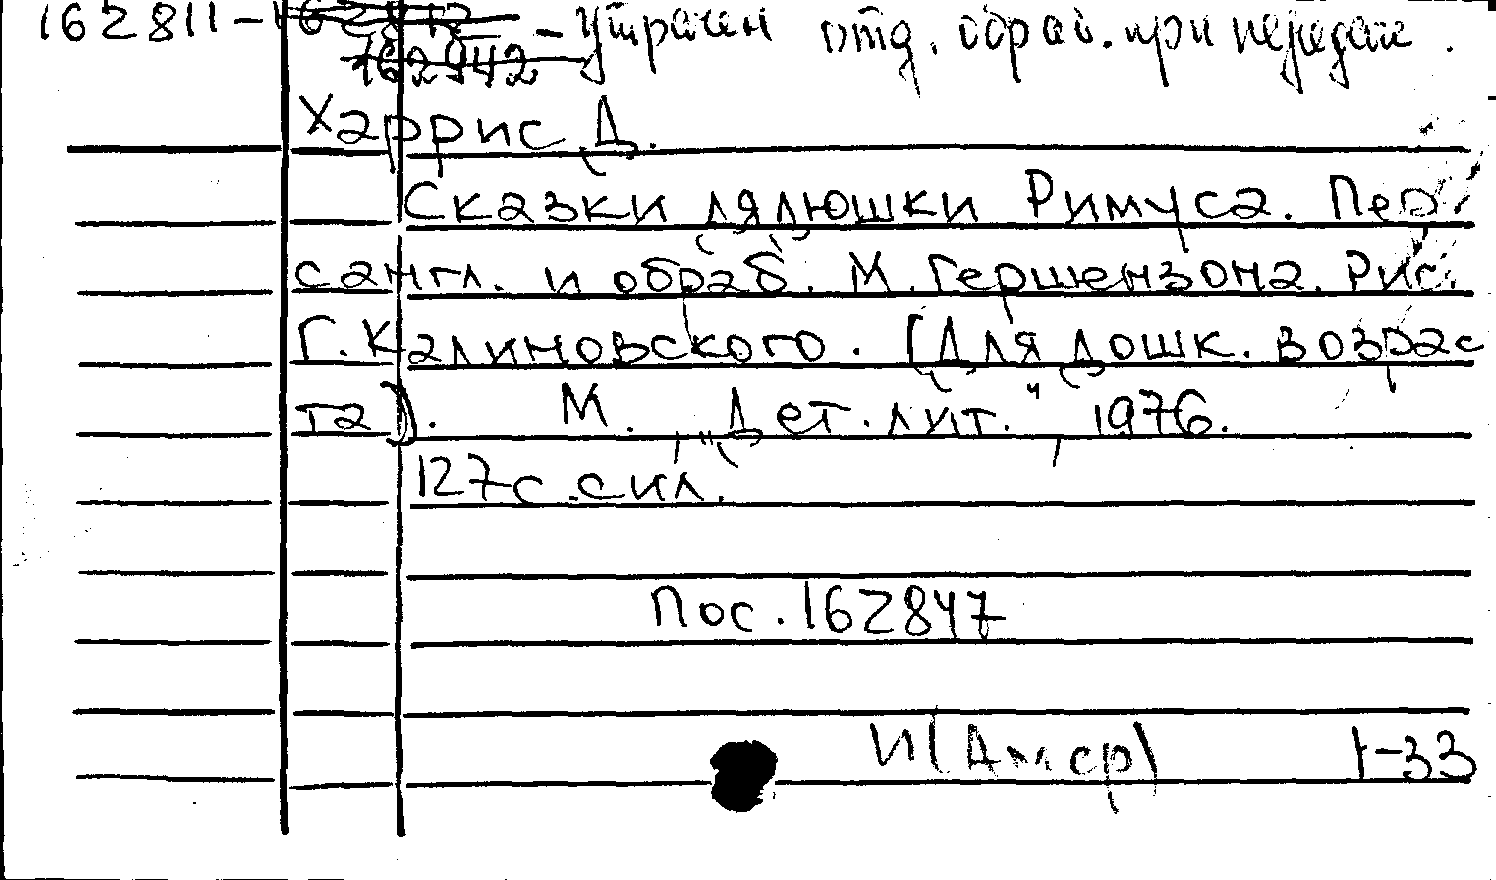 162811 - 162812 - утрачен отд. обраб. при передаче.
162942
Харрис, Д.
Сказки дядюшки Римуса. Пер.
с англ. и обраб. М. Гершензона. Рис.
Г. Калиновского. [Для дошк. возрас
та]. М., "Дет. лит.", 1976.
127 с. с ил.
Пос. 162847
И(Амер) 1-33